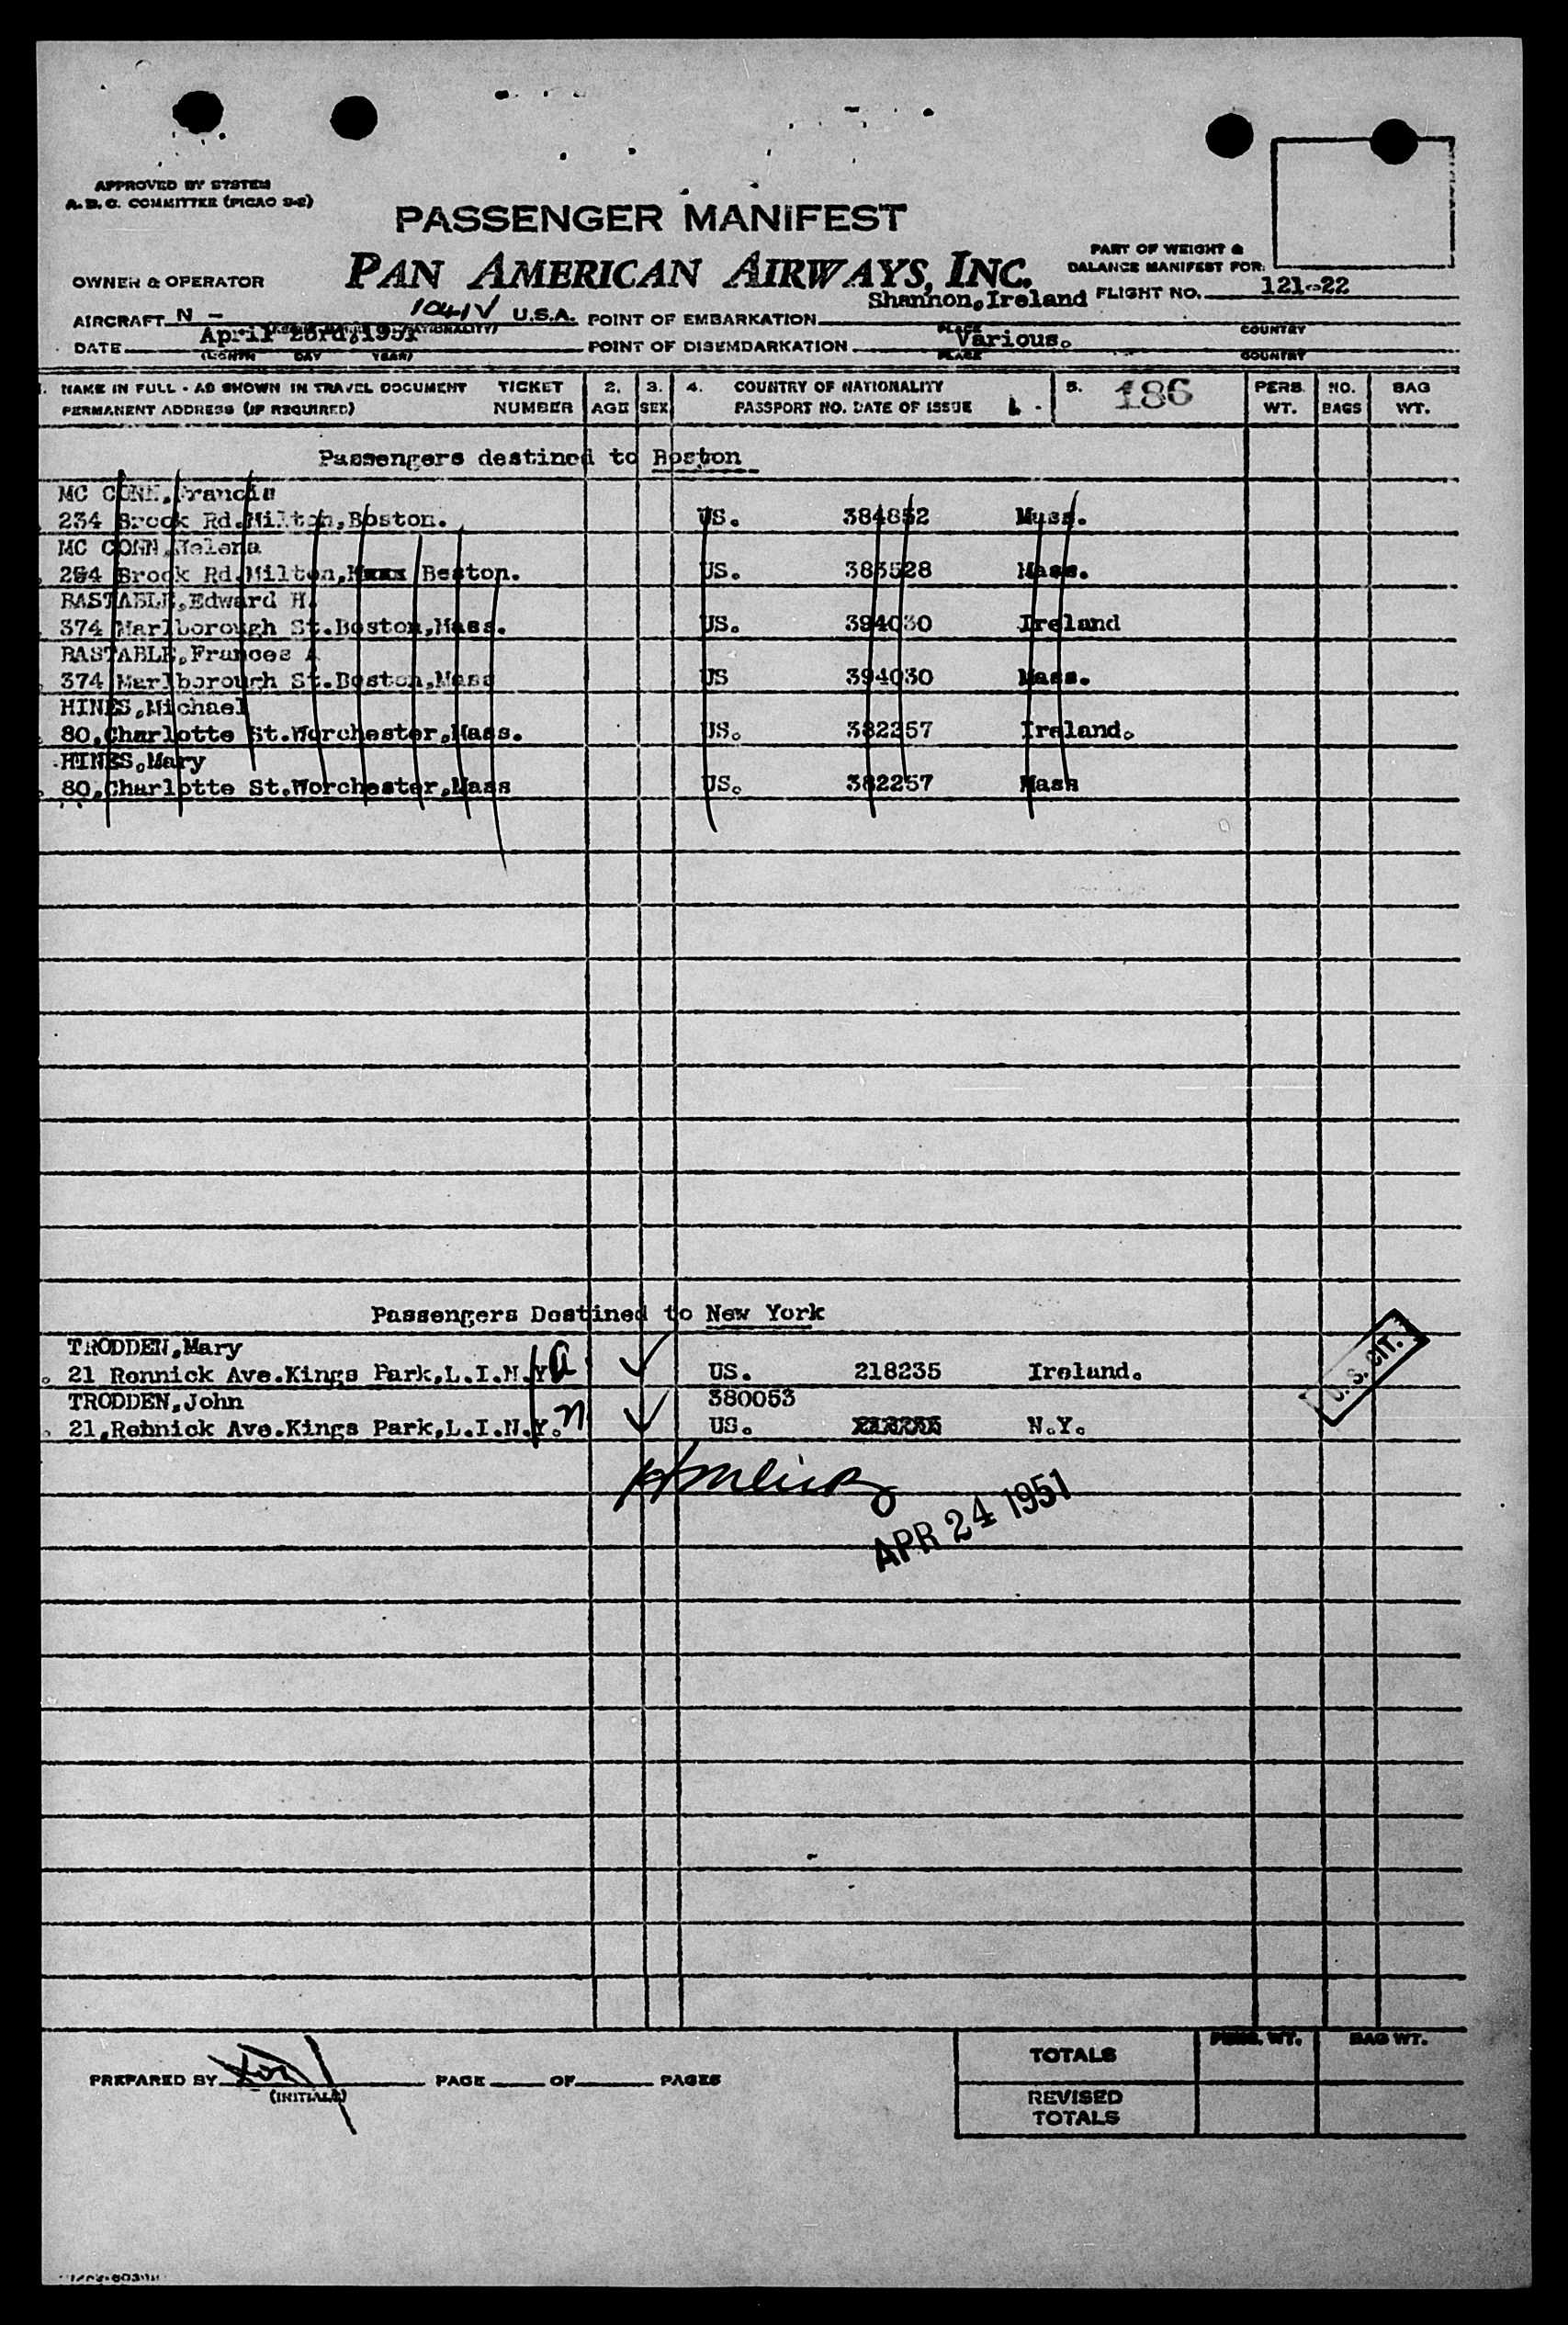 APPROVED BY SYSTEM
A.B.C. COMMITTEE (PICAO S-2)
PASSENGER MANIFEST
PAN AMERICAN AIRWAYS, INC.
OWNER & OPERATOR
PART OF WEIGHT &
BALANCE MANIFEST FOR:
FLIGHT NO. 121-22
AIRCRAFT N - 1041V U.S.A. POINT OF EMBARKATION Shannon, Ireland
PLACE COUNTRY
DATE April 23rd, 1951 POINT OF DISEMBARKATION Various.
(MONTH DAY YEAR) PLACE COUNTRY
1. NAME IN FULL - AS SHOWN IN TRAVEL DOCUMENT TICKET 2. 3. 4. COUNTRY OF NATIONALITY 5. 186 PERS. NO. BAG
PERMANENT ADDRESS (IF REQUIRED) NUMBER AGE SEX PASSPORT NO. DATE OF ISSUE WT. BAGS WT.
Passengers destined to Boston
MC CONN, Francis
234 Brook Rd.Milton,Boston. US. 384852 Mass.
MC CONN, Helena
234 Brook Rd.Milton, Boston. US. 383528 Mass.
BASTABLE, Edward H.
374 Marlborough St.Boston,Mass. US. 394030 Ireland
BASTABLE, Frances A
374 Marlborough St.Boston,Mass US 394030 Mass.
HINES, Michael
80, Charlotte St.Worchester,Mass. US. 382257 Ireland.
HINES, Mary
80, Charlotte St.Worchester,Mass US. 382257 Mass
Passengers Destined to New York
TRODDEN, Mary
21 Rennick Ave.Kings Park,L.I.N.Y. a US. 218235 Ireland.
U.S. CIT.
TRODDEN, John 380053
21, Rennick Ave.Kings Park,L.I.N.Y. n US. 218235 N.Y.
APR 24 1951
TOTALS PERS. WT. BAG WT.
PREPARED BY PAGE OF PAGES
(INITIALS)
REVISED
TOTALS